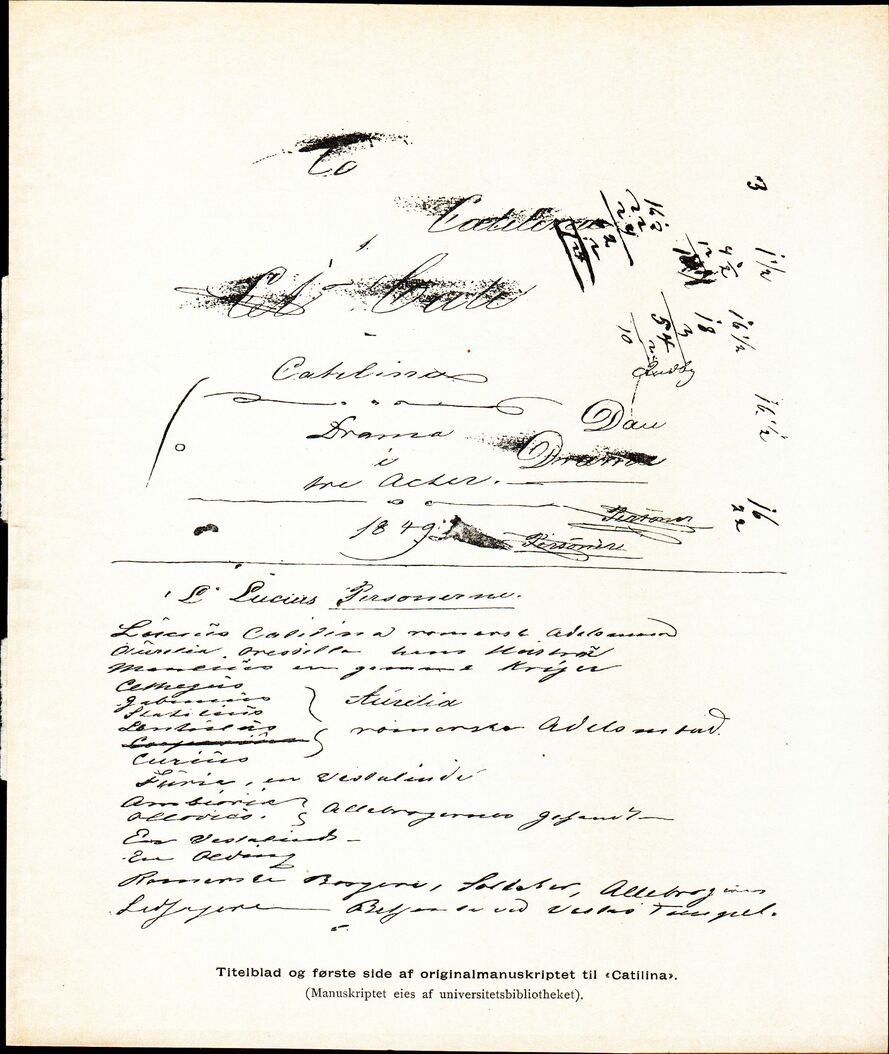 Catilina
Catilina
Drama
i
tre Acter.
1849.
Dan
Drama
Personer
Personer
3
1 1/2
16 1/2
16 1/2
16
22
18
3
54
10
L Lucius Personerne.
Lucius Catilina romersk Adelsmand
Aurelia Orestilla hans Hustru
Manlius en gammel Kriger
Cethegus
Gabinius
Statilius
Aurelia
Lentulus
romerske Adelsmænd.
Curius
Furia, en Vestalinde
Ambiorix
Ollovico.
Allebrogernes Gesandt
En Vestalinde
En Olding
Romerske Borgere, Soldater, Allebrogernes
Ledsagere Betjente ved Vestas Tempel.
Titelblad og første side af originalmanuskriptet til «Catilina».
(Manuskriptet eies af universitetsbibliotheket).